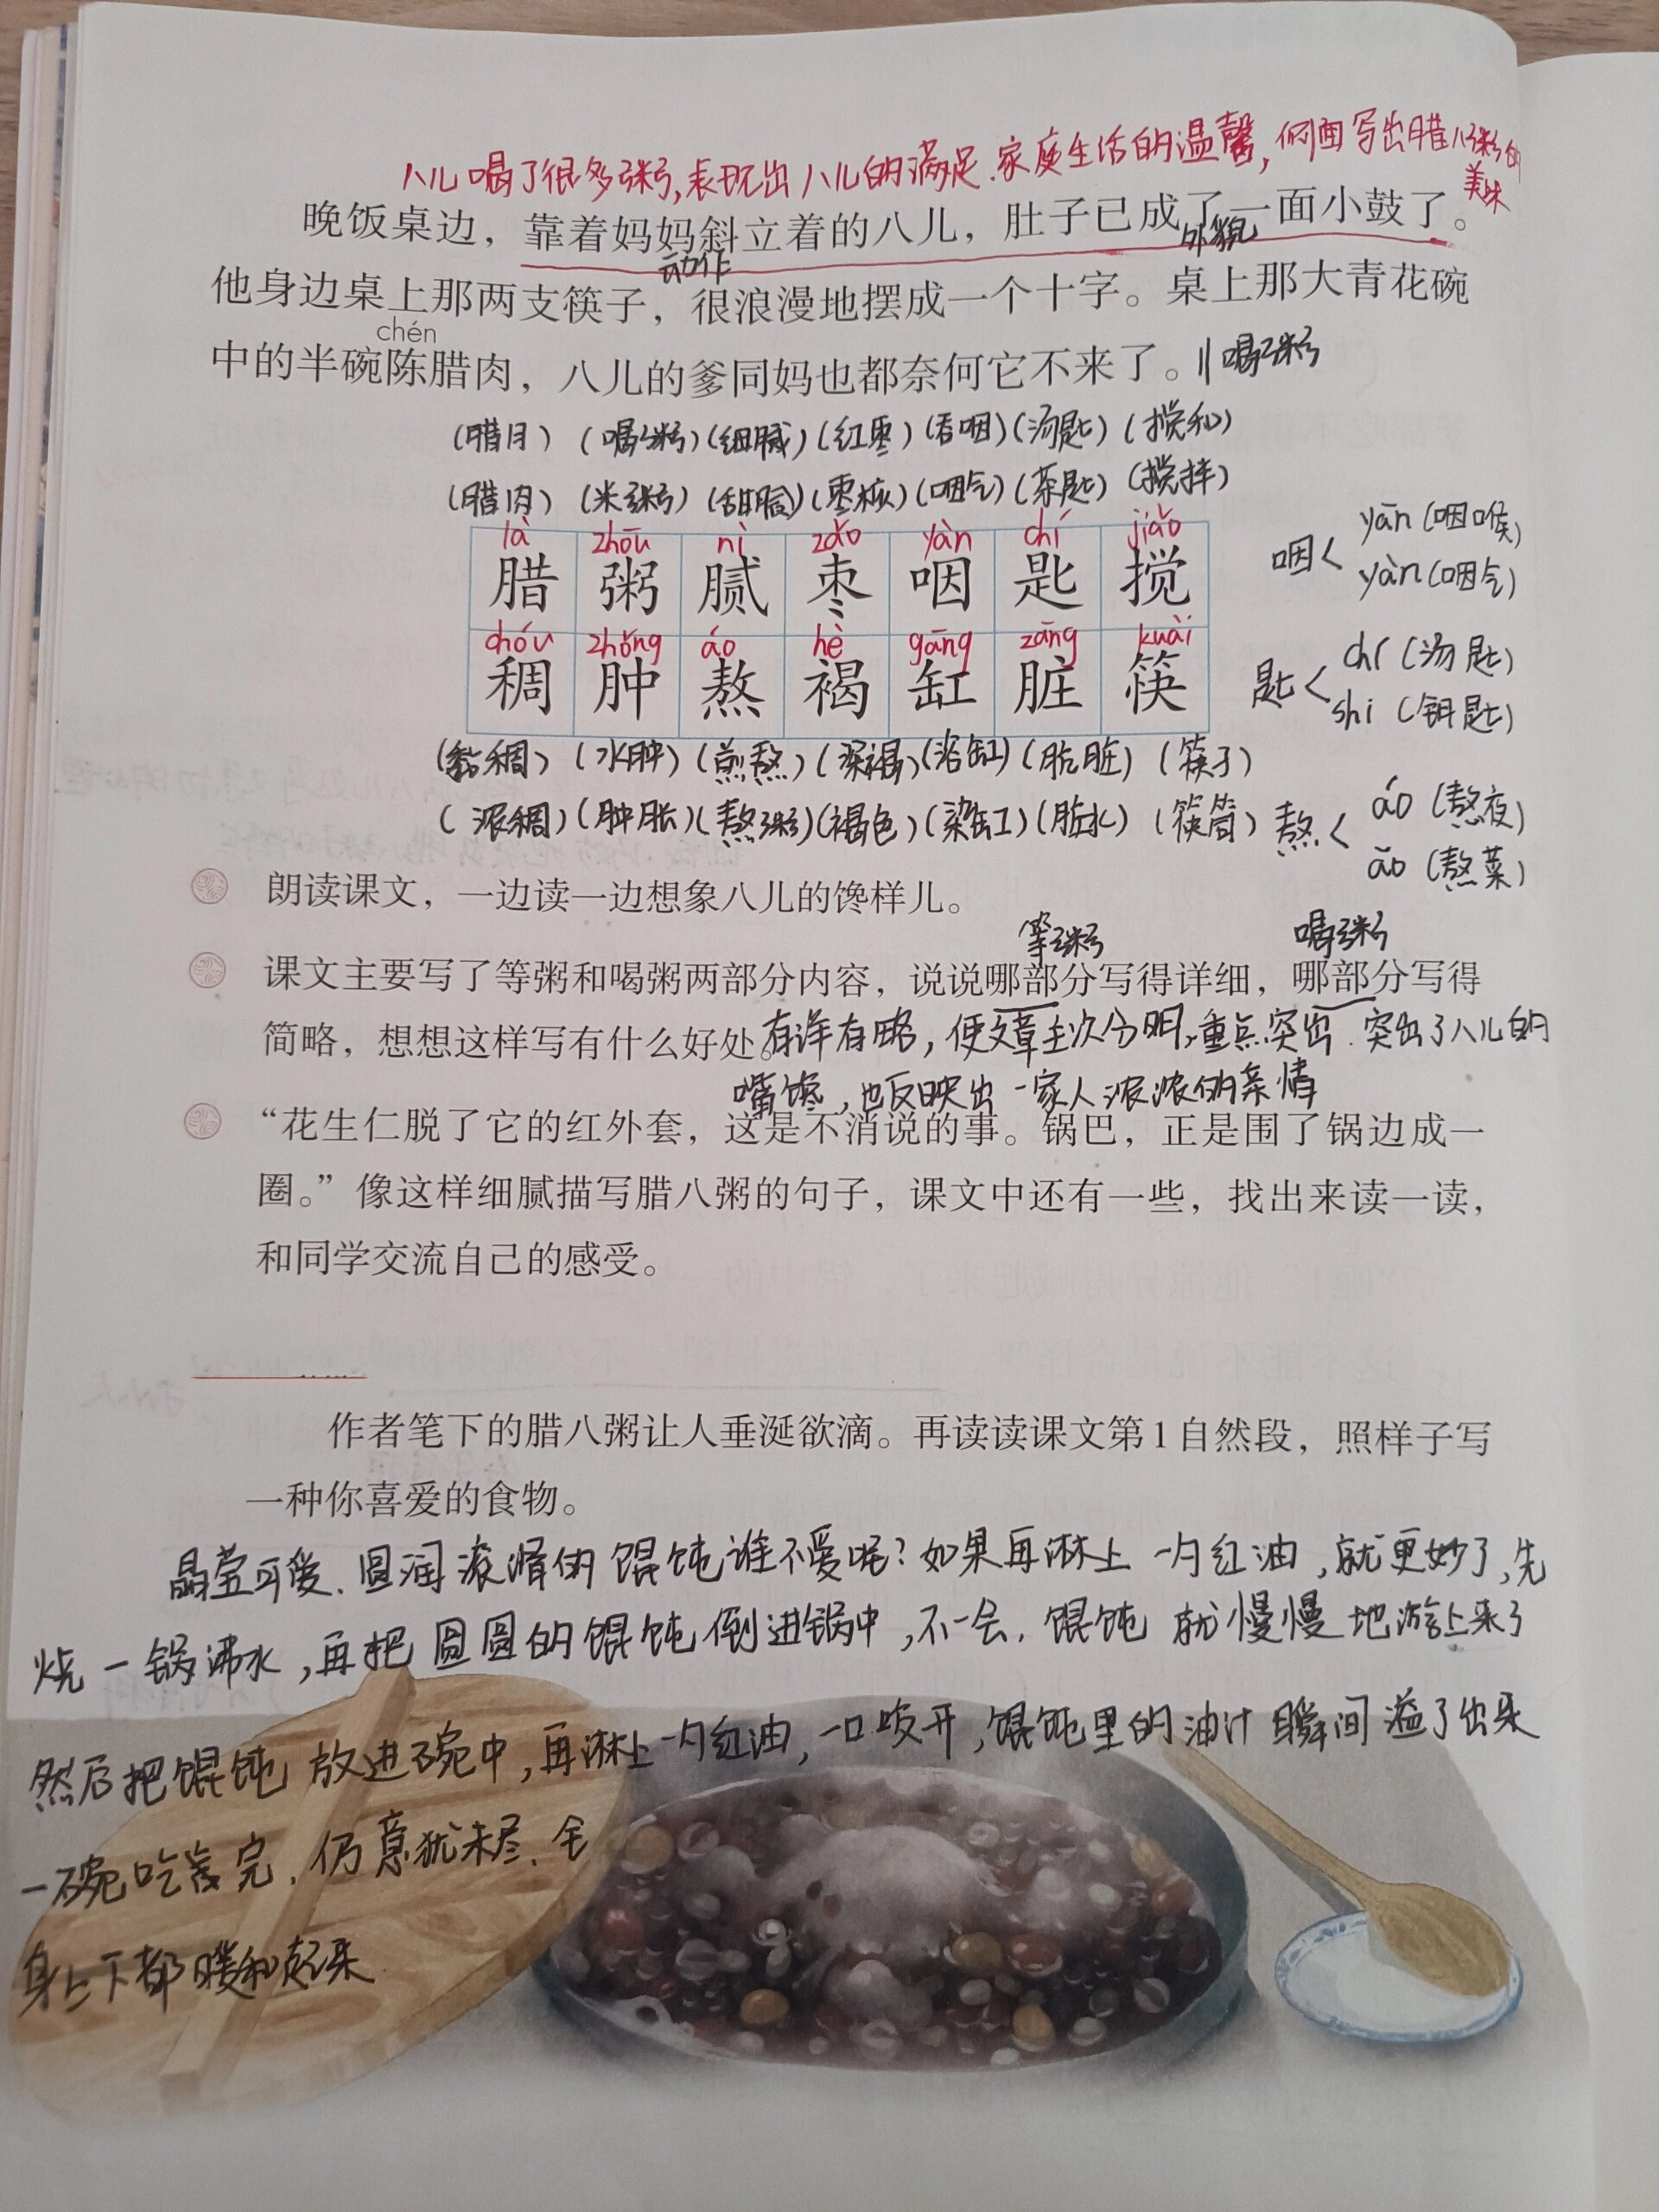 八儿喝了很多粥,表现出八儿的满足.家庭生活的温馨,侧面写出腊八粥的
美味
晚饭桌边，靠着妈妈斜立着的八儿，肚子已成了一面小鼓了。
动作
外貌
他身边桌上那两支筷子，很浪漫地摆成一个十字。桌上那大青花碗
chén
中的半碗陈腊肉，八儿的爹同妈也都奈何它不来了。 ||喝粥
(腊月) (喝粥) (细腻) (红枣) (吞咽) (汤匙) (搅和)
(腊肉) (米粥) (甜腻) (枣核) (咽气) (茶匙) (搅拌)
là zhōu nì zǎo yàn chí jiǎo
腊 粥 腻 枣 咽 匙 搅
chóu zhǒng áo hè gāng zāng kuài
稠 肿 熬 褐 缸 脏 筷
咽< yān (咽喉)
yàn (咽气)
匙< chí (汤匙)
shi (钥匙)
(黏稠) (水肿) (煎熬) (深褐) (浴缸) (肮脏) (筷子)
(浓稠) (肿胀) (熬粥) (褐色) (染缸) (脏水) (筷筒)
熬< áo (熬夜)
āo (熬菜)
朗读课文，一边读一边想象八儿的馋样儿。
等粥 喝粥
课文主要写了等粥和喝粥两部分内容，说说哪部分写得详细，哪部分写得
简略，想想这样写有什么好处。有详有略,使文章主次分明,重点突出.突出了八儿的
嘴馋,也反映出一家人浓浓的亲情
“花生仁脱了它的红外套，这是不消说的事。锅巴，正是围了锅边成一
圈。”像这样细腻描写腊八粥的句子，课文中还有一些，找出来读一读，
和同学交流自己的感受。
作者笔下的腊八粥让人垂涎欲滴。再读读课文第1自然段，照样子写
一种你喜爱的食物。
晶莹可爱.圆润滚滑的馄饨谁不爱呢?如果再淋上一勺红油,就更妙了,先
烧一锅沸水,再把圆圆的馄饨倒进锅中,不一会.馄饨就慢慢地游上来了
然后把馄饨放进碗中,再淋上一勺红油,一口咬开,馄饨里的油汁瞬间溢了出来
一碗吃完.仍意犹未尽.全
身上下都暖和起来